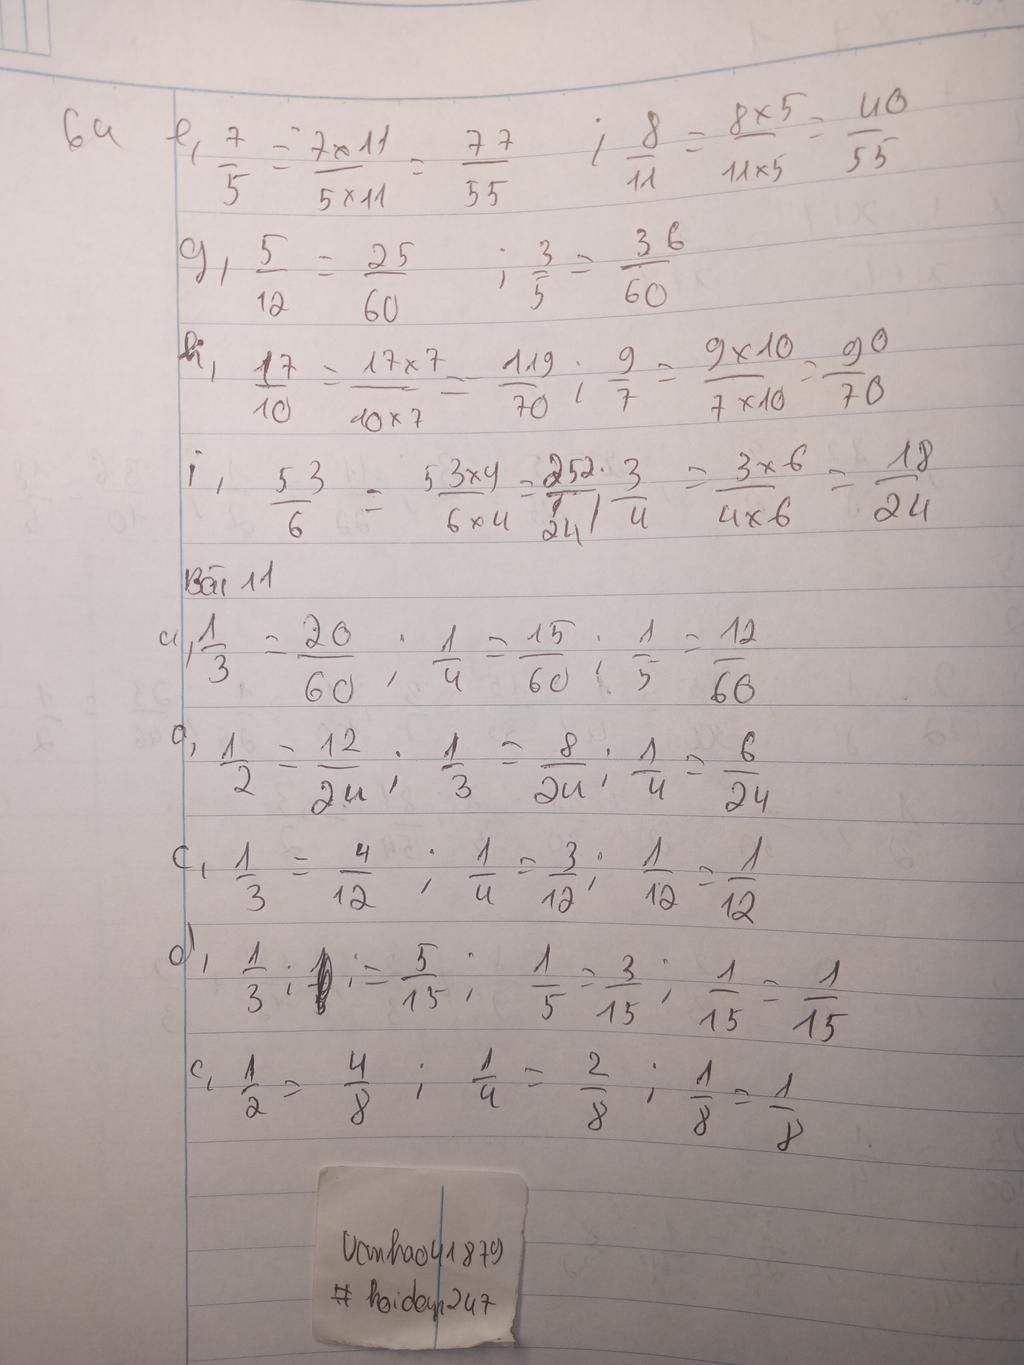 64 e, 7/5 = 7x11/5x11 = 77/55 ; 8/11 = 8x5/11x5 = 40/55
g, 5/12 = 25/60 ; 3/5 = 36/60
h, 17/10 = 17x7/10x7 = 119/70 ; 9/7 = 9x10/7x10 = 90/70
i, 53/6 = 53x4/6x4 = 252/24 ; 3/4 = 3x6/4x6 = 18/24
Bài 11
a, 1/3 = 20/60 ; 1/4 = 15/60 ; 1/5 = 12/60
1/2 = 12/24 ; 1/3 = 8/24 ; 1/4 = 6/24
c, 1/3 = 4/12 ; 1/4 = 3/12 ; 1/12 = 1/12
d, 1/3 ; ; = 5/15 ; 1/5 = 3/15 ; 1/15 = 1/15
c, 1/2 = 4/8 ; 1/4 = 2/8 ; 1/8 = 1/8
Vanhao41879
# hoidap247